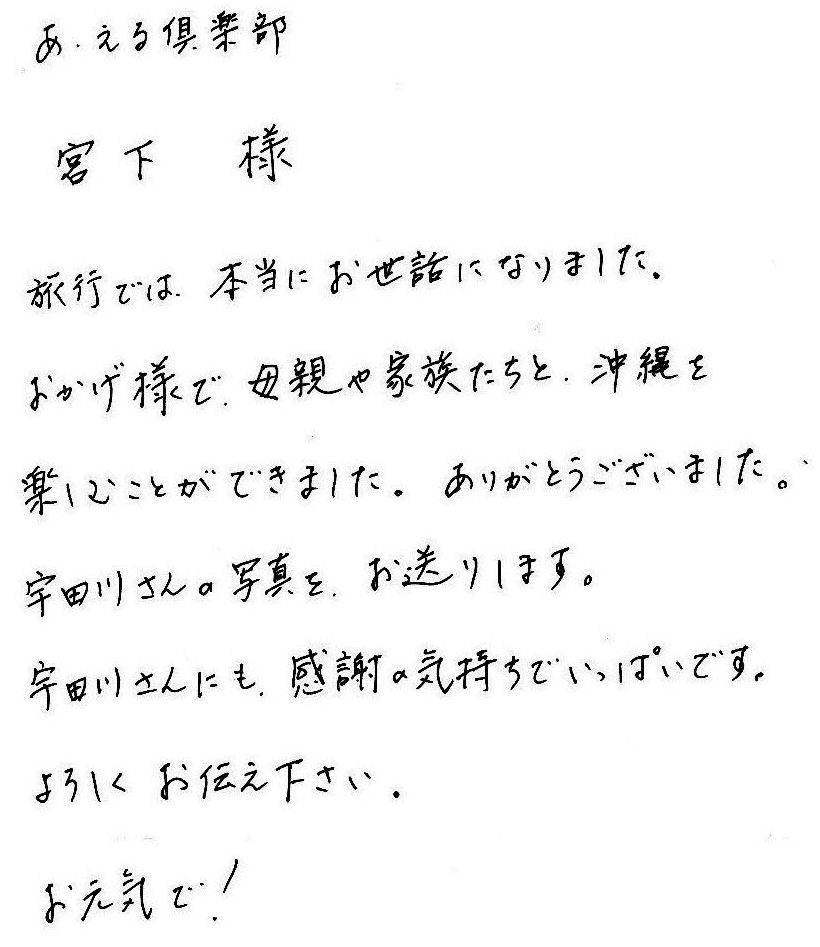 あ・える倶楽部
宮下　様
旅行では、本当にお世話になりました。
おかげ様で、母親や家族たちと、沖縄を
楽しむことができました。ありがとうございました。
宇田川さんの写真を、お送りします。
宇田川さんにも、感謝の気持ちでいっぱいです。
よろしくお伝え下さい。
お元気で！